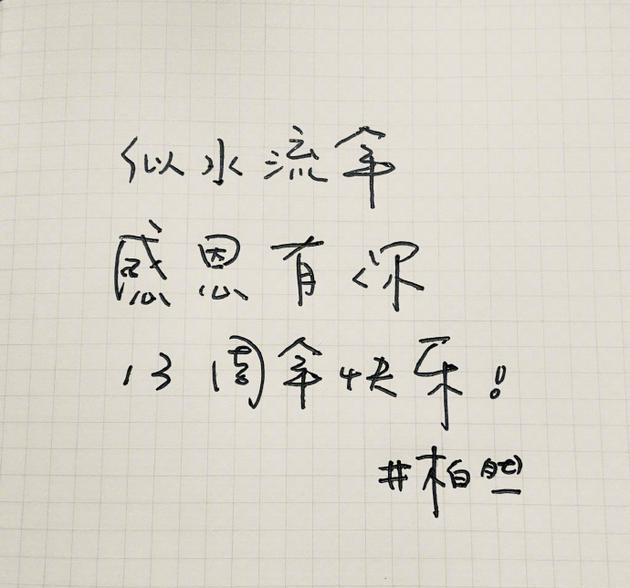 似水流年
感恩有你
13周年快乐！
#柏然